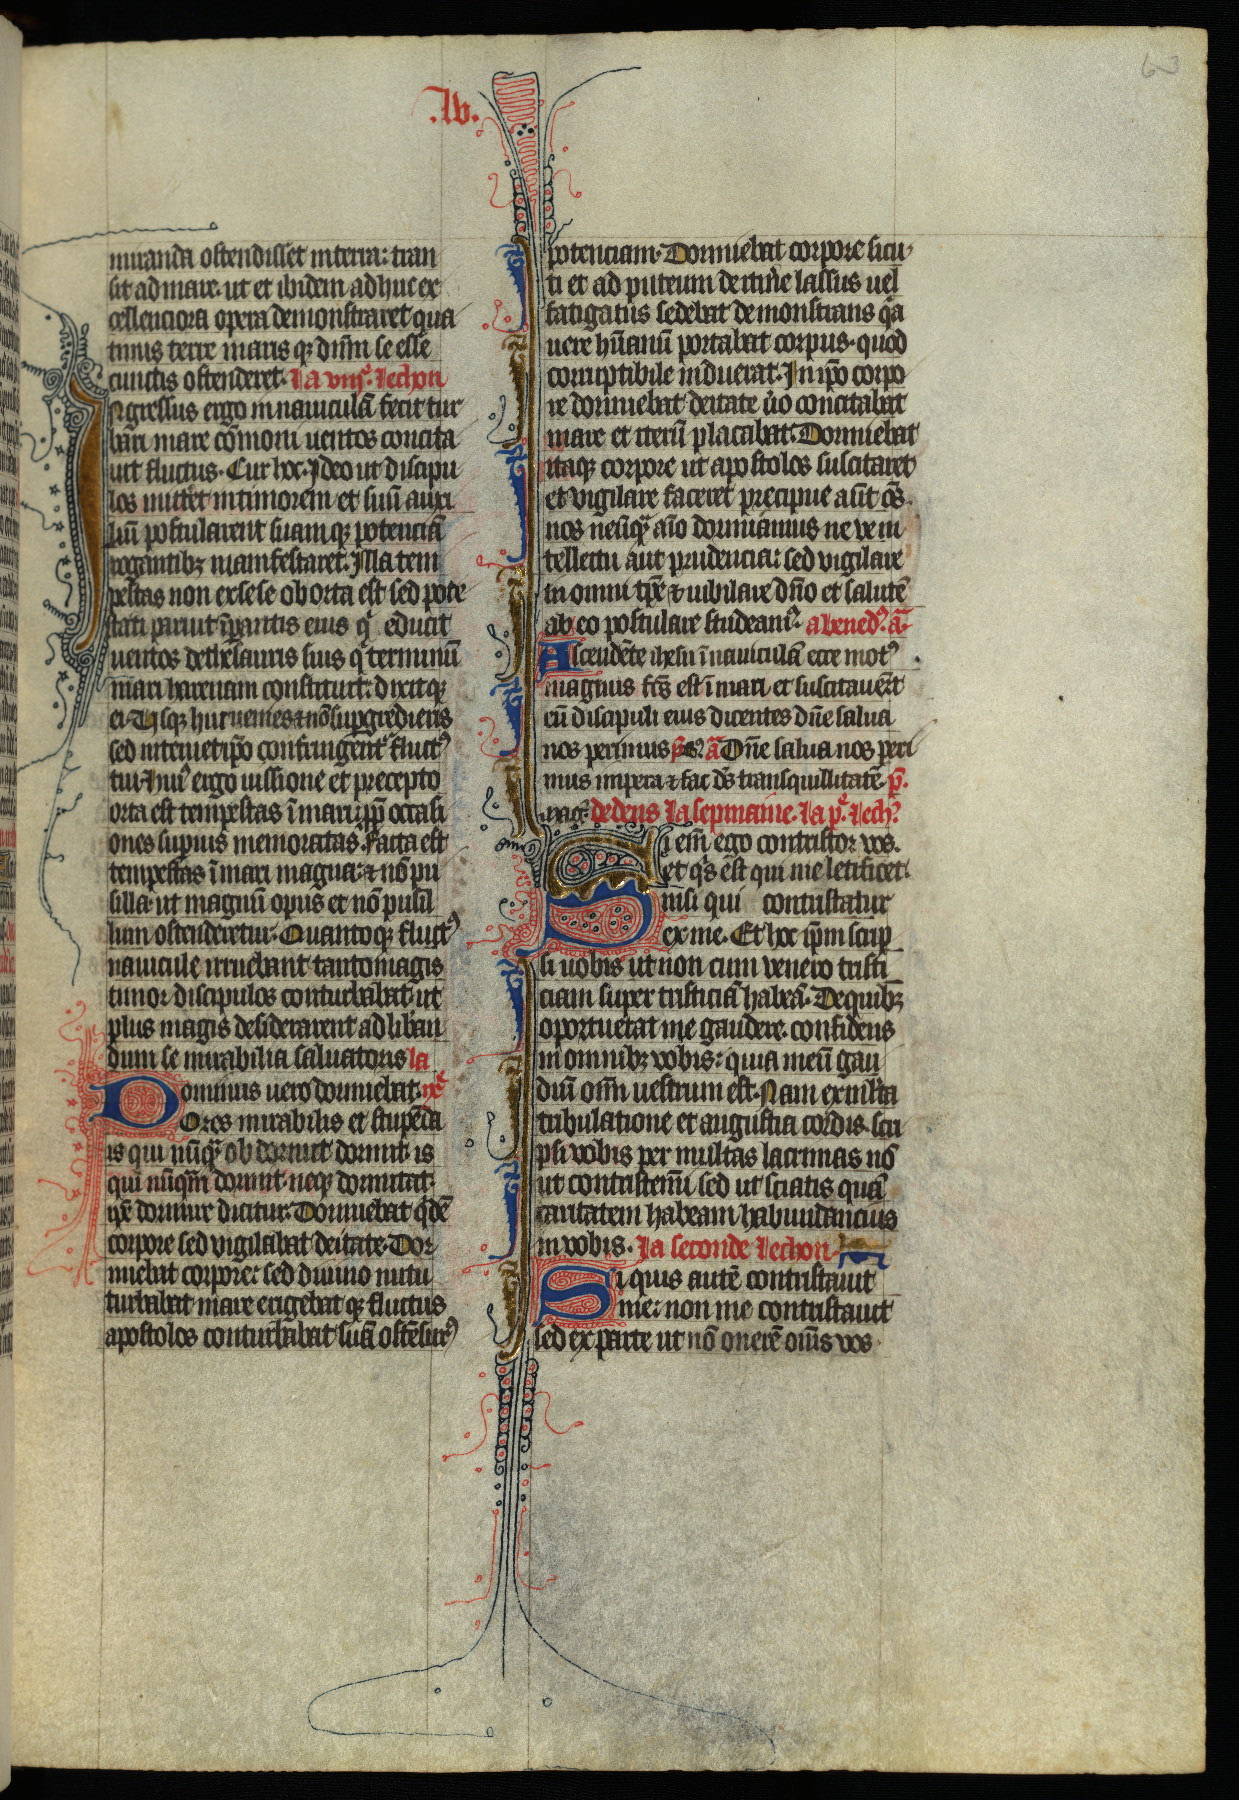 .lv.
63
miranda ostendisset in terra: tran
sit ad mare. ut et ibidem adhuc ex
cellenciora opera demonstraret qua
tinus terre maris q; dnm̄ se esse
cunctis ostenderet. la viijᵉ. lechon
Ingressus ergo in nauiculā fecit tur
bari mare cōmoni uentos concita
uit fluctus. Cur hoc. Ideo ut discipu
los mitteret in timorem et suū auxi
liū postularent suam q; potenciā
rogantib; manifestaret. Illa tem
pestas non ex sese oborta est sed pote
stati paruit īpantis eius qͥ educit
uentos de thesauris suis qͥ terminū
mari harenam constituit: dixit q;
ei. Usq; huc uenies ⁊ nō suꝑgredieris
sed in temetiꝑo confringent fluctꝰ
tui. Huiꝰ ergo iussione et precepto
orta est tempestas ī mari: ꝓꝑ occasi
ones supius memoratas. Facta est
tempestas ī mari magna: ⁊ nō pu
silla. ut magnū opus et nō pusil
lum ostenderetur. Quanto q; fluctꝰ
nauicule irruebant tanto magis
timor discipulos conturbabat. ut
plus magis desiderarent ad liban
dum se mirabilia saluatoris la
Dominus uero dormiebat. ixᵉ
O res mirabilis et stupēda
is qui nūqͣ obdormit dormit. is
qui nūqͣm dormit. neq; dormitat.
ipē dormire dicitur. Dormiebat qͥdē
corpore sed vigilabat deitate. Dor
miebat corpore: sed diuino nutu
turbabat mare erigebat q; fluctus
apostolos conturbabat suā ostēsurꝰ
potenciam. Dormiebat corpore sicu
ti et ad puteum de itinͤe lassus uel
fatigatus sedebat demonstrans qͥa
uere hūanū portabat corpus. quod
corruptibile induerat. In ipō corpo
re dormiebat deitate uͦo concitabat
mare et iterū placabat. Dormiebat
itaq; corpore ut apostolos suscitaret
et vigilare faceret precipue aūt oēs
nos neūqͣ aīo dormiamus neve in
tellectu aut prudencia: sed vigilare
in omni tꝑe ⁊ iubilare dn̄o et salutē
ab eo postulare studeamꝰ. a bened.ꝰ ā.
Ascendēte ihesu ī nauiculā ecce motꝰ
magnus fc̄s est ī mari et suscitauer̄t
eū discipuli eius dicentes dn̄e salua
nos perimus p̄s. ā Dn̄e salua nos peri
mus impera ⁊ fac dš transquillitatē p̄.
mag. dedens la sepmaine. la pͬ. lechꝰ
Si em̄ ego contristor vos.
et qͥs ē̄st qui me letificet.
nisi qui contristatur
ex me. Et hoc ipm̄ scrip
si uobis ut non cum venero tristi
ciam super tristiciā habeā. De quib;
oportuerat me gaudere. confidens
in omnib; vobis: quia meū gau
diū om̄ uestrum est. Nam ex multa
tribulatione et angustia cordis. scri
psi vobis per multas lacrimas nō
ut contristemī sed ut sciatis quā
caritatem habeam habundancius
in vobis. la seconde lechon
Si quis autē contristauit
me: non me contristauit
sed ex parte ut nō onerē om̄s vos.